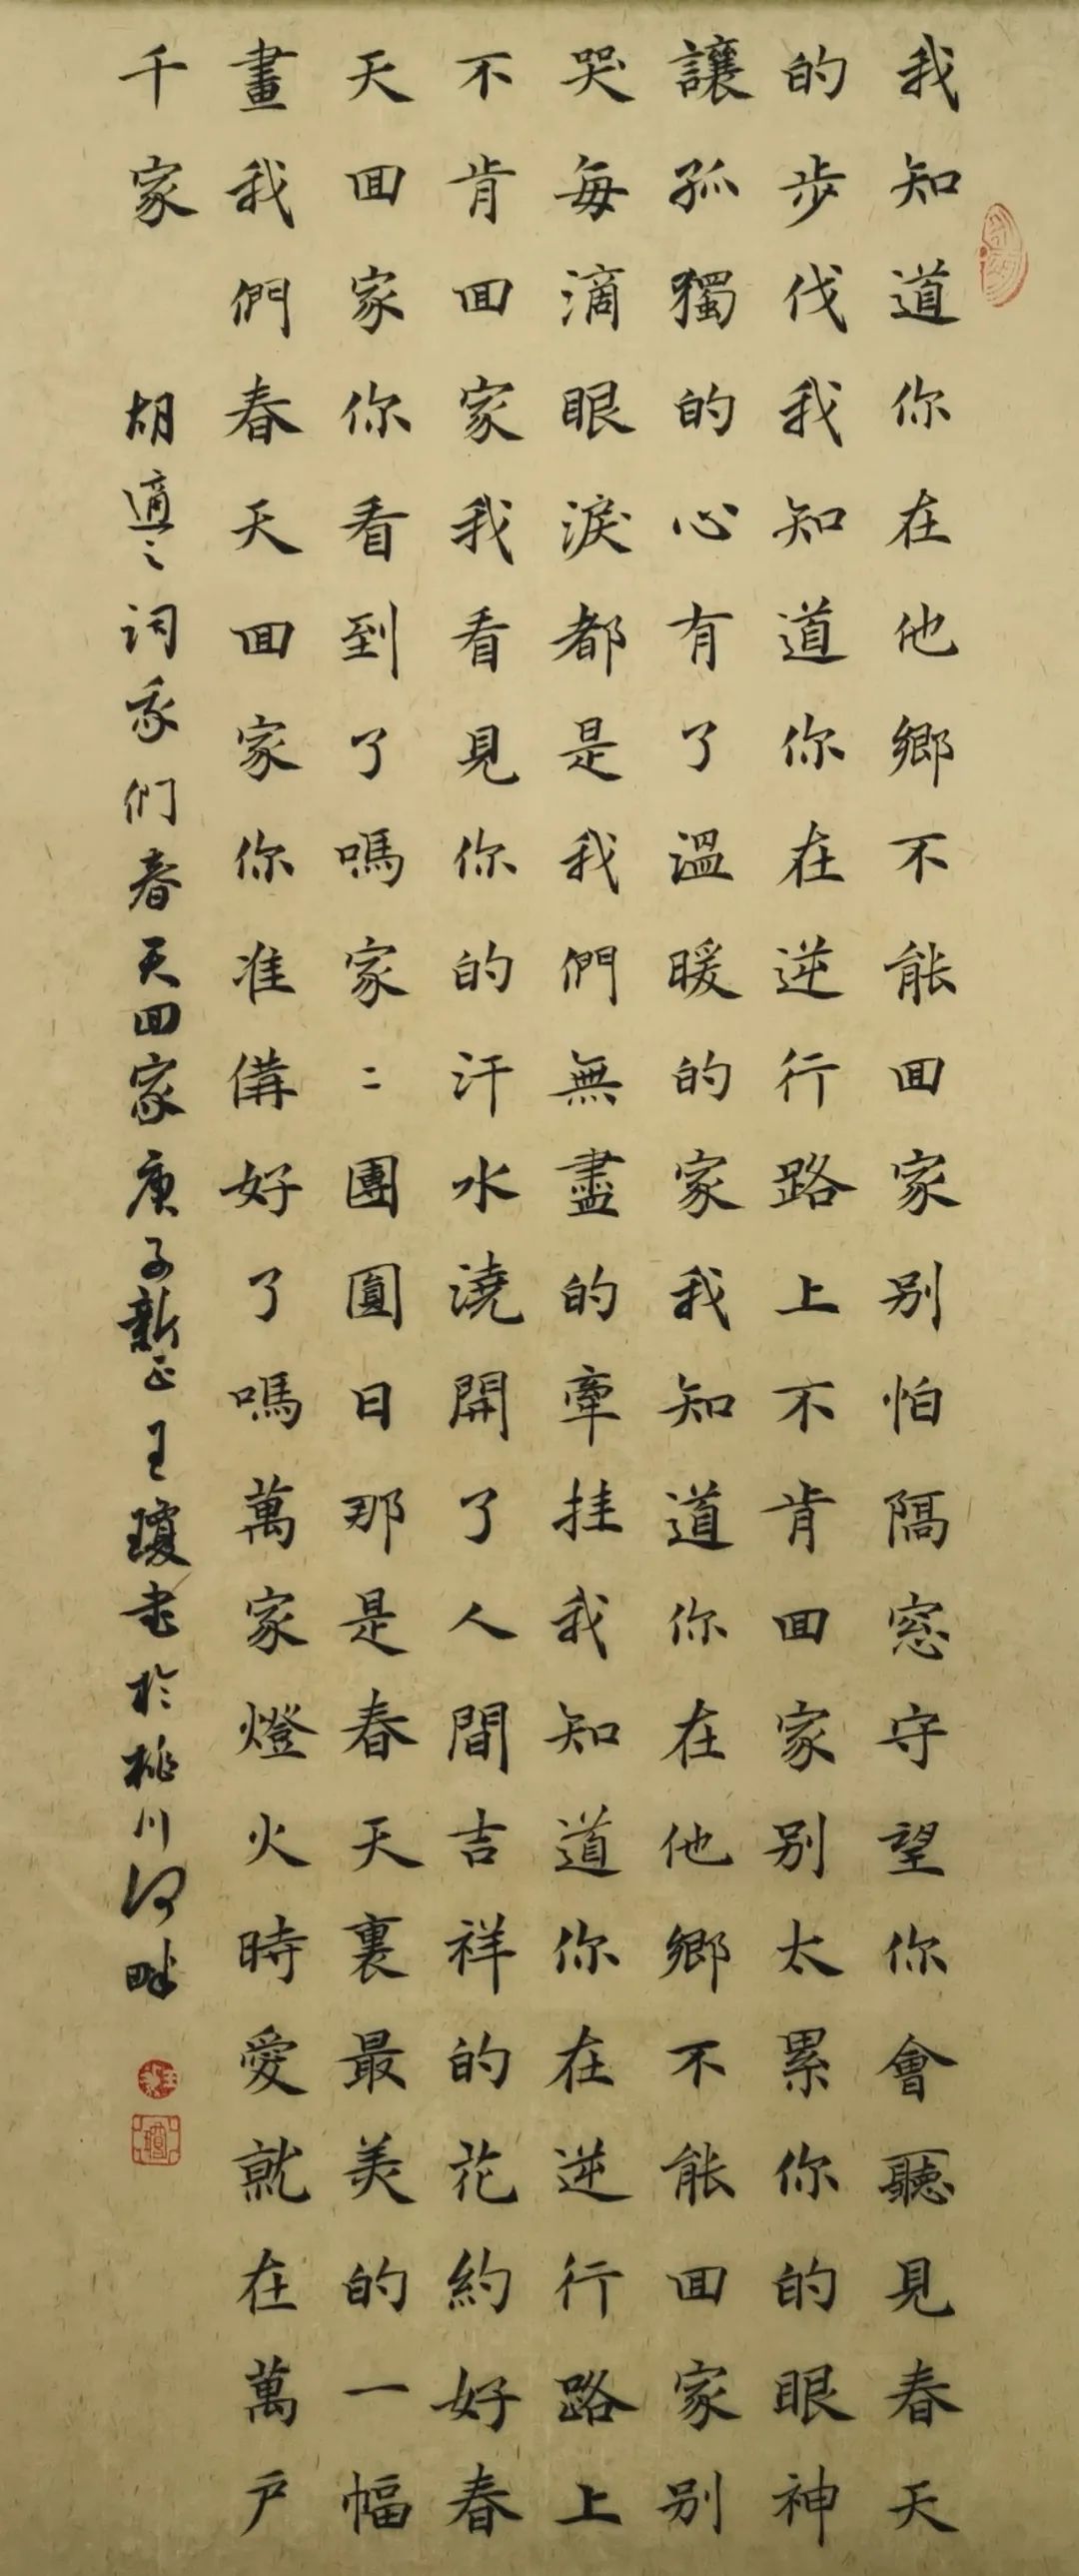 我知道你在他鄉不能回家别怕隔窓守望你會聽見春天
的步伐我知道你在逆行路上不肯回家别太累你的眼神
讓孤獨的心有了溫暖的家我知道你在他鄉不能回家别
哭每滴眼淚都是我們無盡的牽挂我知道你在逆行路上
不肯回家我看見你的汗水澆開了人間吉祥的花約好春
天回家你看到了嗎家〻團圓日那是春天裏最美的一幅
畫我們春天回家你准備好了嗎萬家燈火時愛就在萬户
千家
胡適之詞我们春天回家庚子新正王瓊書於桃川河畔